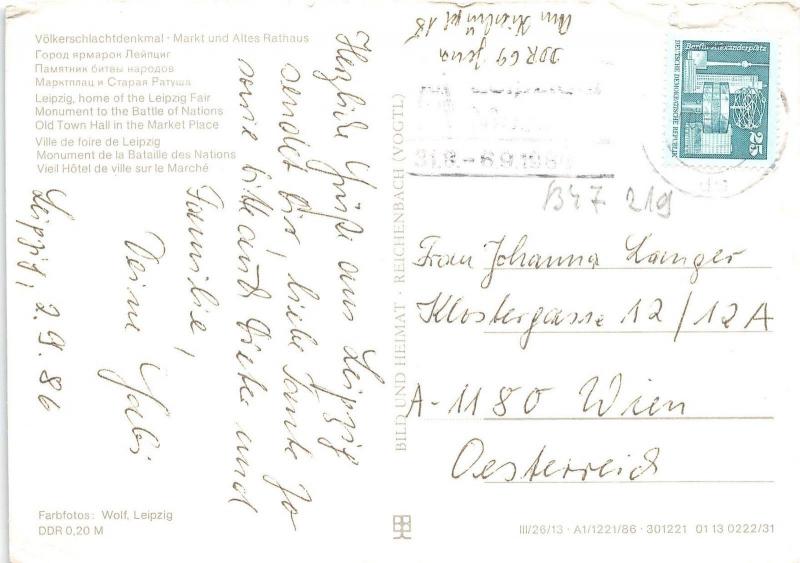 Völkerschlachtdenkmal · Markt und Altes Rathaus
Город ярмарок Лейпциг
Памятник битвы народов
Марктплац и Старая Ратуша
Leipzig, home of the Leipzig Fair
Monument to the Battle of Nations
Old Town Hall in the Market Place
Ville de foire de Leipzig
Monument de la Bataille des Nations
Vieil Hôtel de ville sur le Marché
Leipzig, 2.9.86
Herzliche Grüße aus Leipzig
sendet Dir, liebe Tante Jo
sowie bitte auch Dieter und
Familie,
Deine Gabi
Farbfotos: Wolf, Leipzig
DDR 0,20 M
BILD UND HEIMAT · REICHENBACH (VOGTL)
DDR 69 Jena
18
31.8.-6.9.198
Berlin, Alexanderplatz
DEUTSCHE DEMOKRATISCHE REPUBLIK
25
B47 219
Frau Johanna Langer
Klostergasse 12/12A
A-1180 Wien
Oesterreich
III/26/13 · A1/1221/86 · 301221 01 13 0222/31